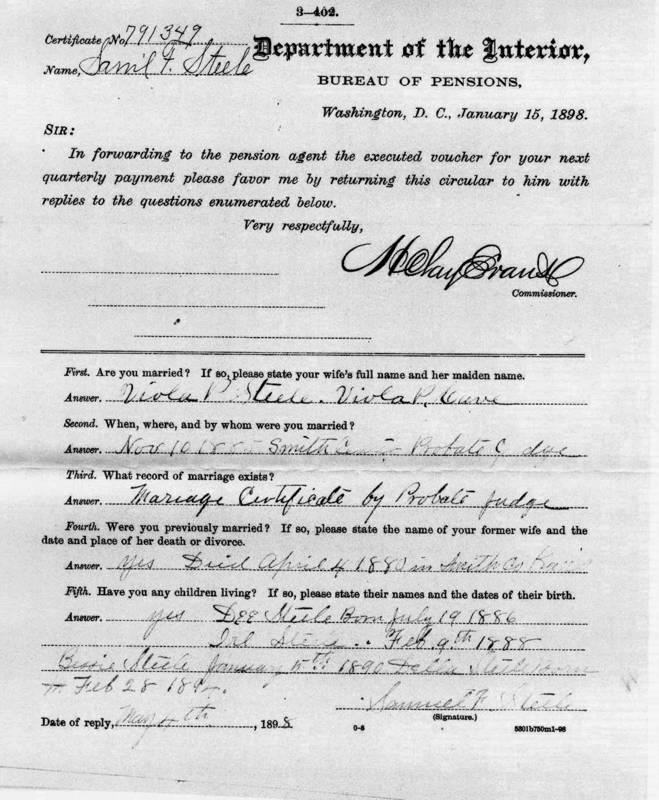 3—402.
Certificate No, 791349
Department of the Interior,
Name, Saml F. Steele
BUREAU OF PENSIONS,
Washington, D. C., January 15, 1898.
SIR:
In forwarding to the pension agent the executed voucher for your next
quarterly payment please favor me by returning this circular to him with
replies to the questions enumerated below.
Very respectfully,
H Clay Evans
Commissioner.
First. Are you married? If so, please state your wife's full name and her maiden name.
Answer. Viola P. Steele. Viola P. Cave
Second. When, where, and by whom were you married?
Answer. Nov 10 1885 Smith Probate
Third. What record of marriage exists?
Answer. Mariage Certificate by Probate judge
Fourth. Were you previously married? If so, please state the name of your former wife and the
date and place of her death or divorce.
Answer. yes Died April 4 in Smith Co
Fifth. Have you any children living? If so, please state their names and the dates of their birth.
Answer. yes Dee Steele Born July 19 1886
Steele .. Feb. 9th 1888
Bessie Steele January 1890 Della Steele Born
Feb 28
Samuel F Steele
(Signature.)
Date of reply, May 4th, 1898
0-8
5301b750m1-98